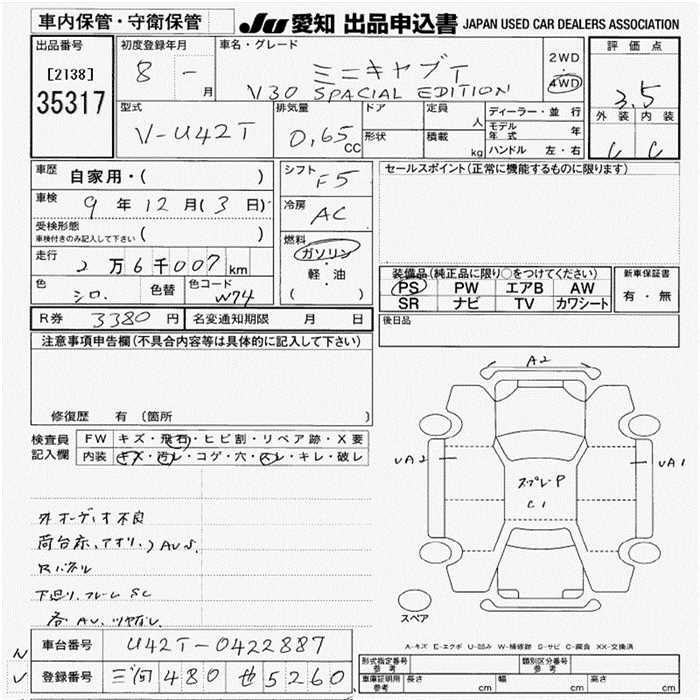 車内保管・守衛保管
JU 愛知 出品申込書 JAPAN USED CAR DEALERS ASSOCIATION
出品番号
[2138]
35317
初度登録年月
8 - 月
車名・グレード
ミニキャブT
V30 SPACIAL EDITION
2WD
4WD
評価点
3.5
外装 内装
C C
型式
V-U42T
排気量
0.65 CC
ドア
形状
定員
人
積載
kg
ディーラー・並行
モデル年式 年
ハンドル 左・右
車歴 自家用・( )
車検 9年12月(3日)
受検形態
車検付きのみ記入して下さい ( )
走行 2万6千007km
色 シロ. 色替 色コード W74
シフト F5
冷房 AC
燃料
ガソリン
・
軽・油
( )
セールスポイント(正常に機能するものに限ります)
装備品(純正品に限り○をつけてください)
PS PW エアB AW
SR ナビ TV カワシート
新車保証書
有・無
R券 3380円 名変通知期限 月 日
後日品
注意事項申告欄(不具合内容等は具体的に記入して下さい)
修復歴 有(箇所 )
検査員記入欄
FW キズ・飛石・ヒビ割・リペア跡・X要
内装 キズ・汚レ・コゲ・穴・スレ・キレ・破レ
外オーディオ不良
荷台床、アオリ、AUS
Rパネル
下廻リ、フレームSC
A2
UA2
UA1
スプレーP
C1
スペア
A-キズ E-エクボ U-凹み W-補修跡 S-サビ C-腐食 XX-交換済
NV
車台番号 U42T-0422887
登録番号 三河480せ5260
形式指定番号 参考
類別区分番号 参考
車庫証明用 参考 長さ cm 幅 cm 高さ cm